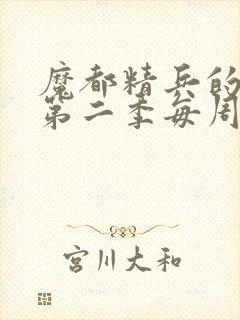 魔都精兵的
第二季每周
宫川大和